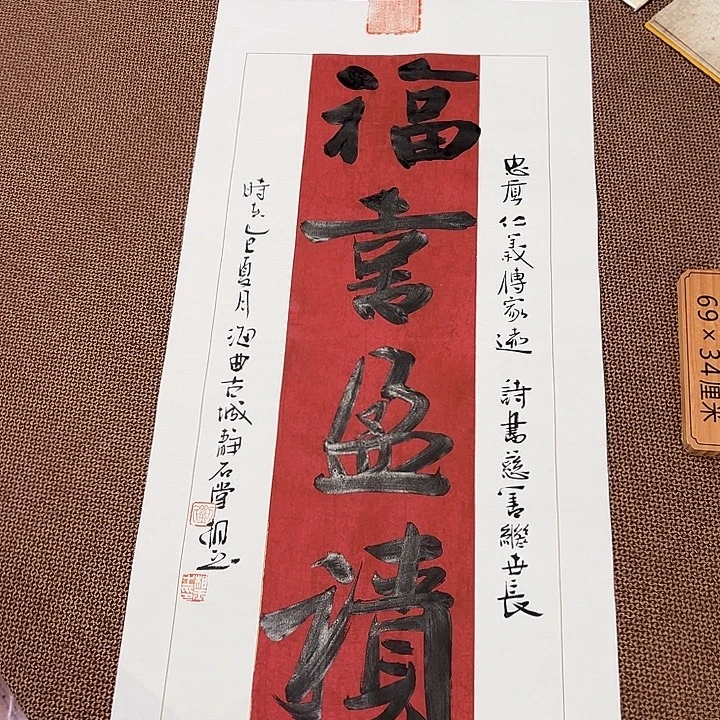 福喜盈
忠厚仁義傳家遠 詩書慈善繼世長
時在乙巳夏月海曲古城静石堂
69×34厘米